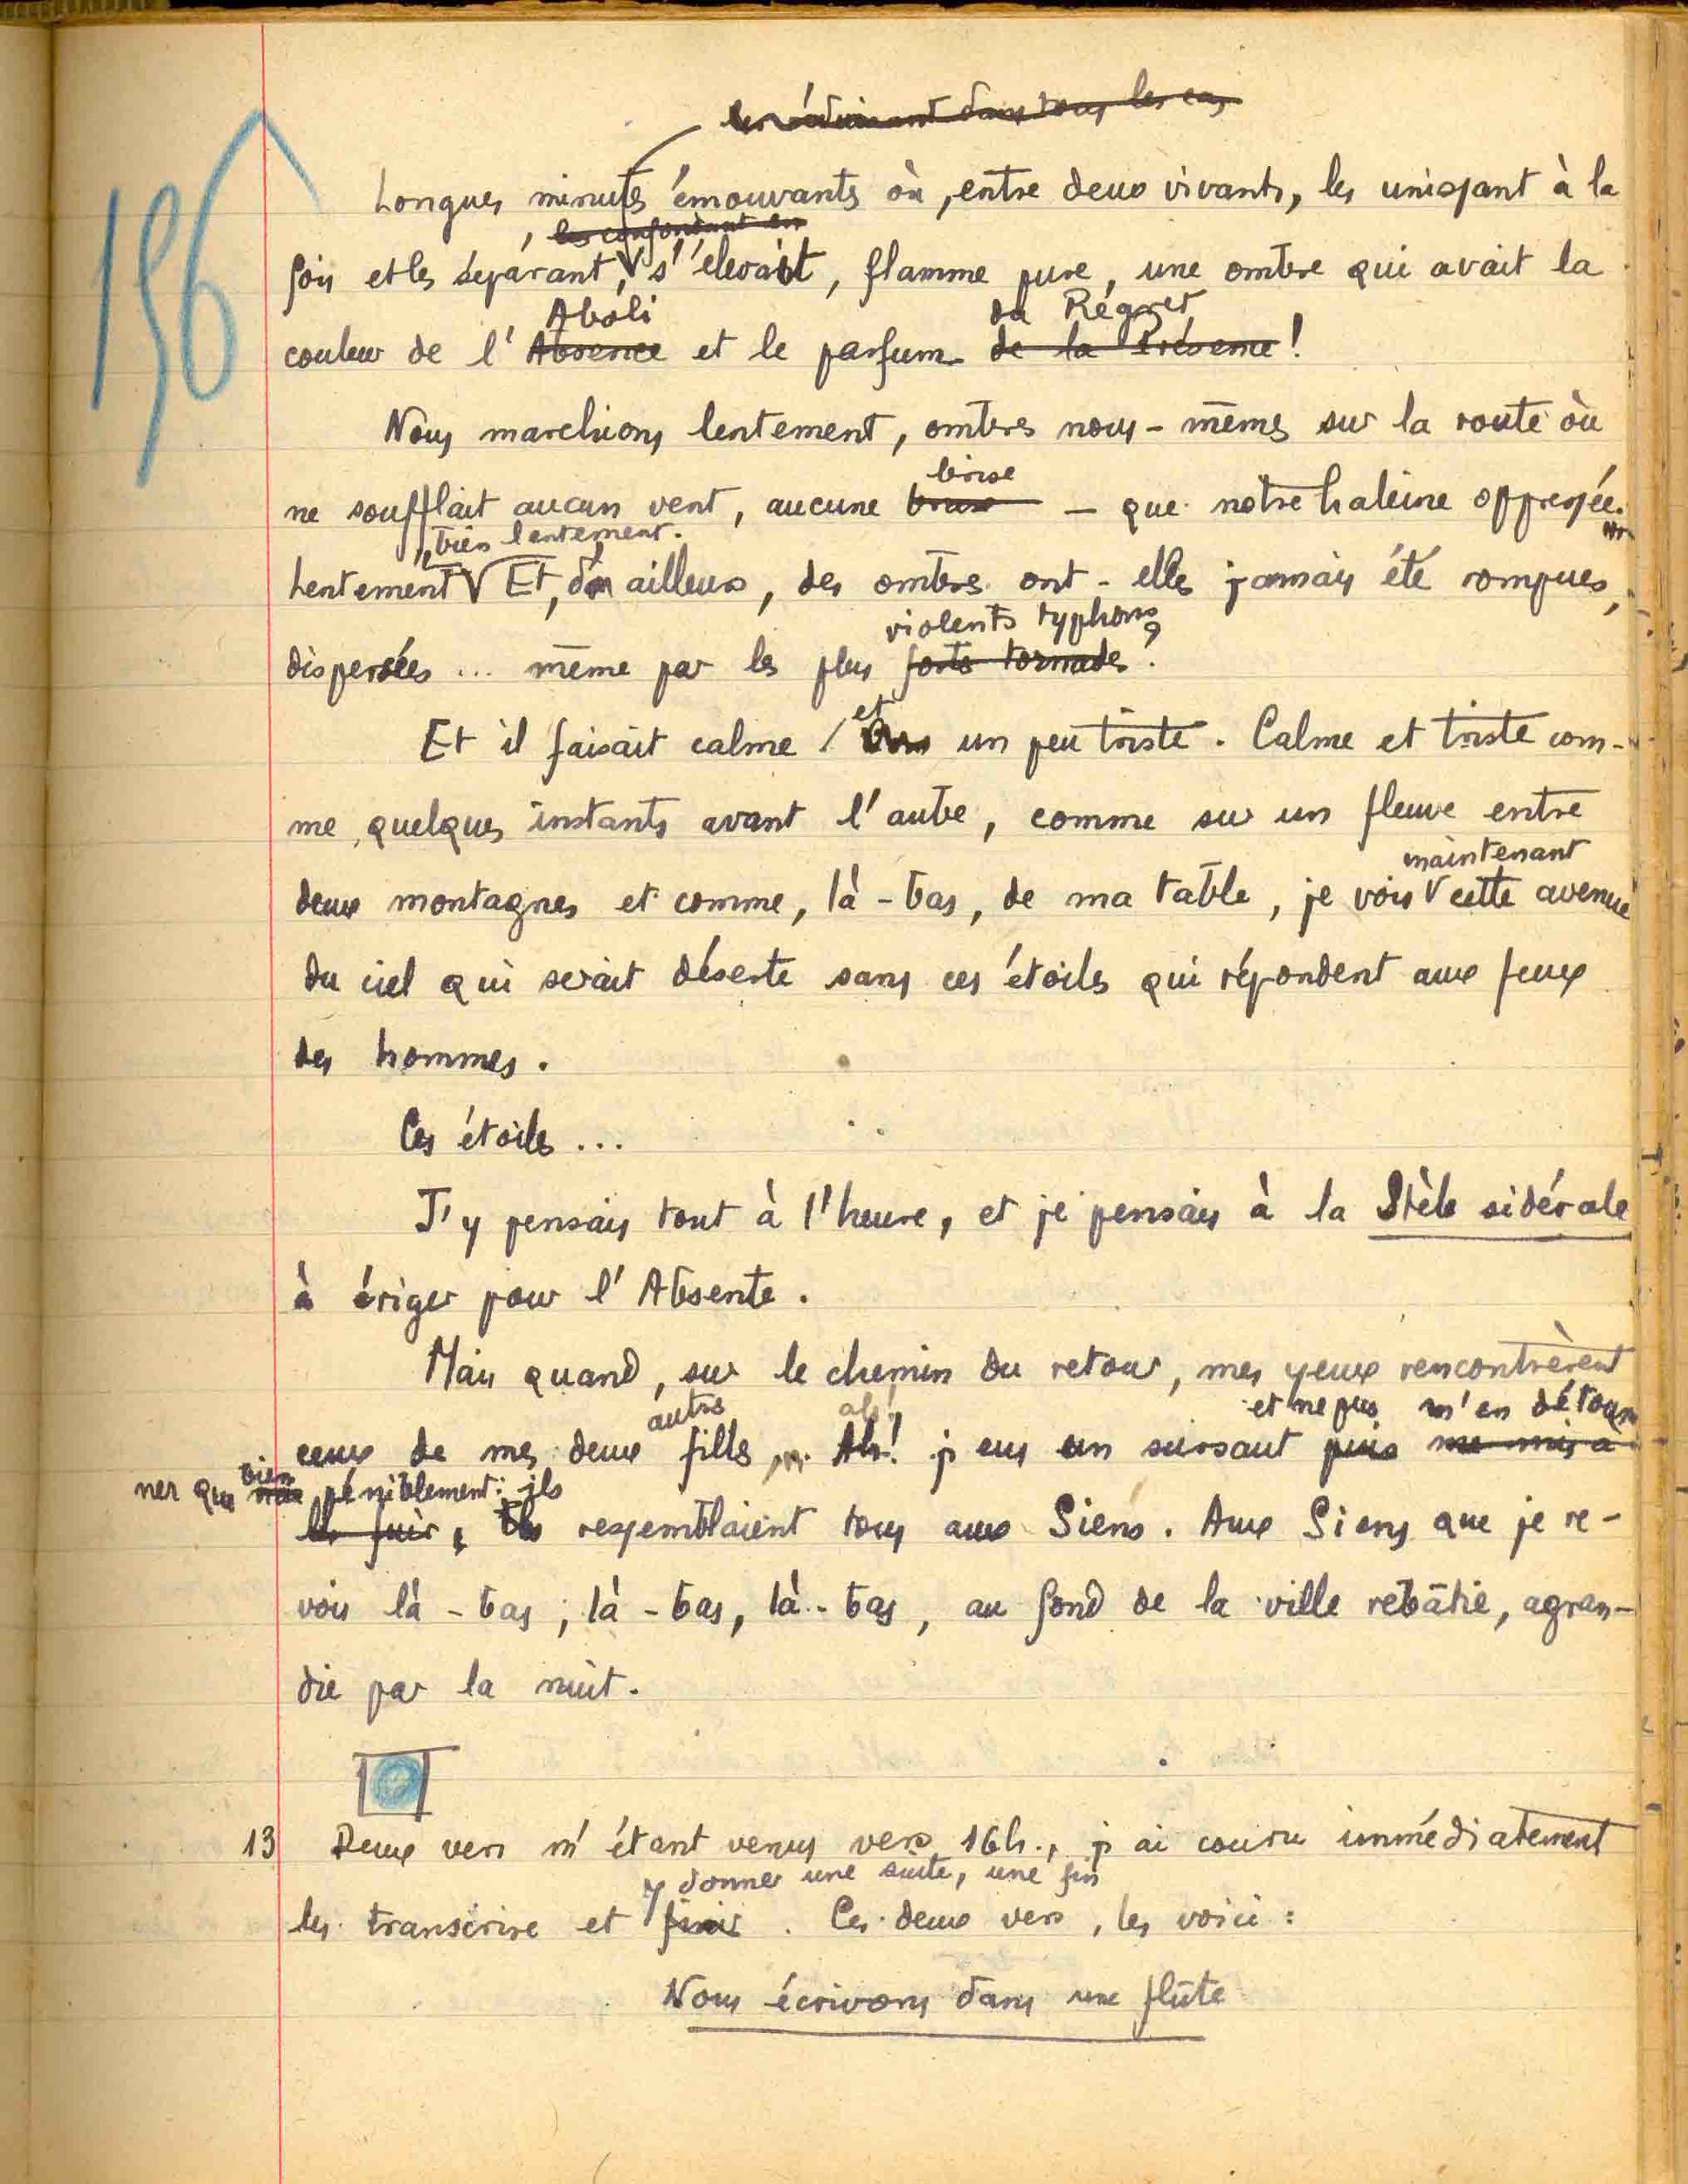 156
dans tous les cas
Longues minutes émouvantes où, entre deux vivants, les unissant à la
les confondant en
fois et les séparant, s'élevait, flamme pure, une ombre qui avait la
Aboli du Régret
couleur de l'Absence et le parfum de la Présence !
Nous marchions lentement, ombres nous-mêmes sur la route où
brise
ne soufflait aucun vent, aucune — que notre haleine oppressée.
, très lentement.
Lentement Et, d'ailleurs, des ombres ont-elles jamais été rompues,
violents typhons
dispersées ... même par les plus forts tornades ?
et
Et il faisait calme un peu triste. Calme et triste com-
me, quelques instants avant l'aube, comme sur un fleuve entre
maintenant
deux montagnes et comme, là-bas, de ma table, je vois cette avenue
du ciel qui serait déserte sans ces étoiles qui répondent aux feux
des hommes.
Ces étoiles ...
J'y pensais tout à l'heure, et je pensais à la Stèle sidérale
à ériger pour l'Absente.
Mais quand, sur le chemin du retour, mes yeux rencontrèrent
autres ah! et ne pus m'en détour
ceux de mes deux filles, ... Ah! j'eus un sursaut puis me mis à
ner que bien péniblement : ils
les fuir, Ils ressemblaient tous aux Siens. Aux Siens que je re-
vois là-bas, là-bas, là-bas, au fond de la ville rebâtie, agran-
die par la nuit.
13 Deux vers m'étant venus vers 16h., j'ai couru immédiatement
y donner une suite, une fin
les transcrire et finir. Ces deux vers, les voici :
Nous écrivons dans une flûte